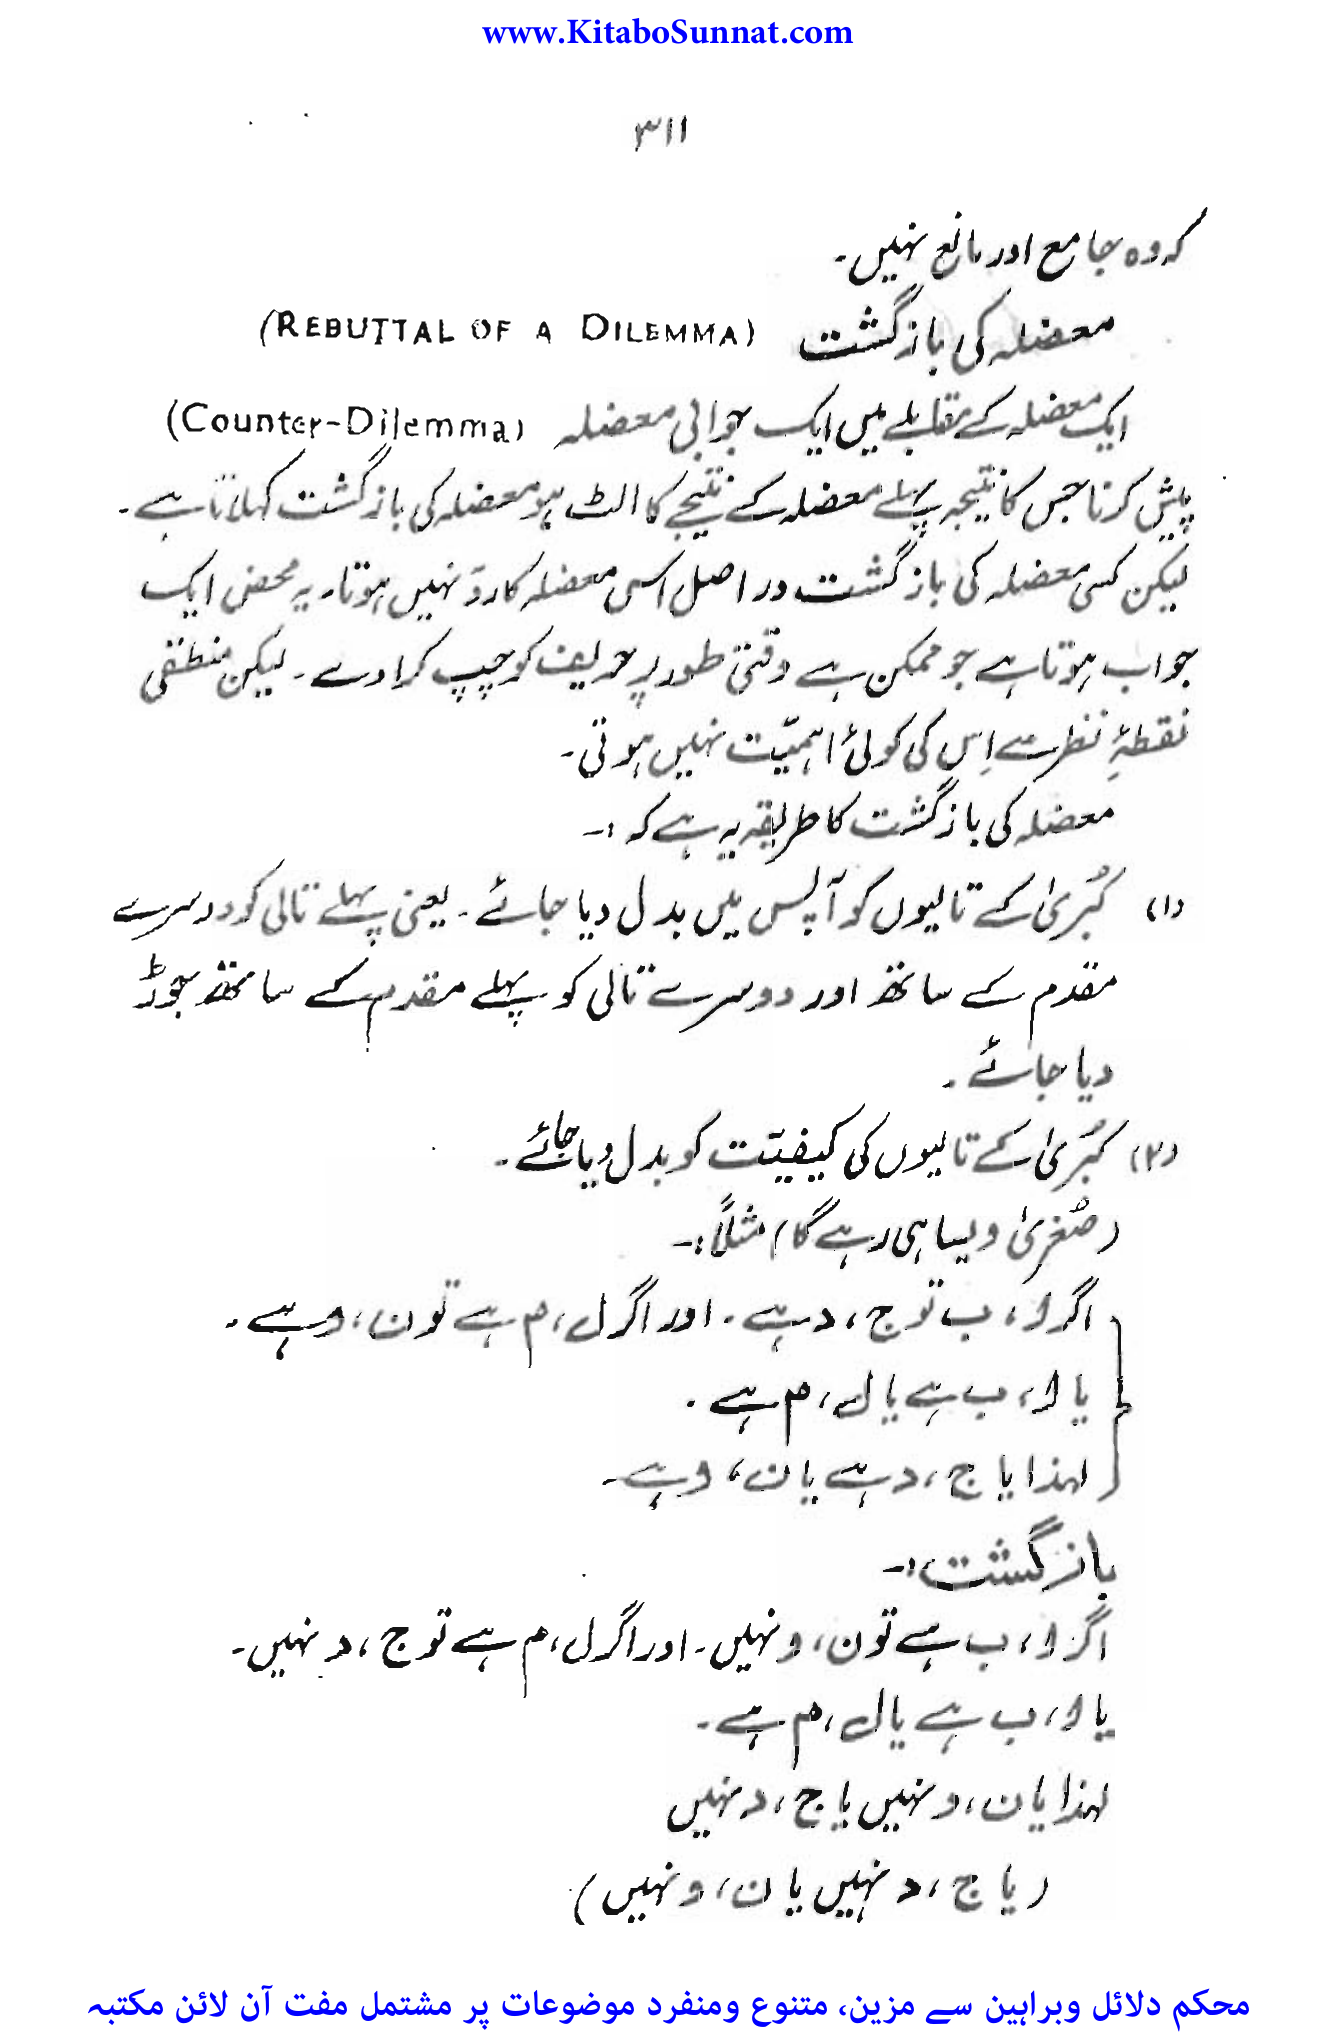 www.KitaboSunnat.com
۳۱۱
کہ وہ جامع اور مانع نہیں۔
معضلہ کی بازگشت (REBUTTAL OF A DILEMMA)
ایک معضلہ کے مقابلے میں ایک جوابی معضلہ (Counter-Dilemma)
پیش کرنا جس کا نتیجہ پہلے معضلہ کے نتیجے کا الٹ ہو معضلہ کی بازگشت کہلاتا ہے۔
لیکن کسی معضلہ کی بازگشت دراصل اس معضلہ کا ردّ نہیں ہوتا۔ یہ محض ایک
جواب ہوتا ہے جو ممکن ہے وقتی طور پر حریف کو چپ کرا دے۔ لیکن منطقی
نقطۂِ نظر سے اِس کی کوئی اہمیّت نہیں ہوتی۔
معضلہ کی بازگشت کا طریقہ یہ ہے کہ :۔
(۱) کُبریٰ کے تالیوں کو آپس میں بدل دیا جائے۔ یعنی پہلے تالی کو دوسرے
مقدم کے ساتھ اور دوسرے تالی کو پہلے مقدم کے ساتھ جوڑ
دیا جائے۔
(۲) کُبریٰ کے تالیوں کی کیفیّت کو بدل دیا جائے۔
(صُغریٰ ویسا ہی رہے گا) مثلاً :۔
اگر ا، ب تو ج، د ہے۔ اور اگر ل، م ہے تو ن، و ہے۔
یا ا، ب ہے یا ل، م ہے۔
لہذا یا ج، د ہے یا ن، و ہے۔
بازگشت :۔
اگر ا، ب ہے تو ن، و نہیں۔ اور اگر ل، م ہے تو ج، د نہیں۔
یا ا، ب ہے یا ل، م ہے۔
لہذا یا ن، و نہیں یا ج، د نہیں
(یا ج، د نہیں یا ن، و نہیں)
محکم دلائل وبراہین سے مزین، متنوع ومنفرد موضوعات پر مشتمل مفت آن لائن مکتبہ